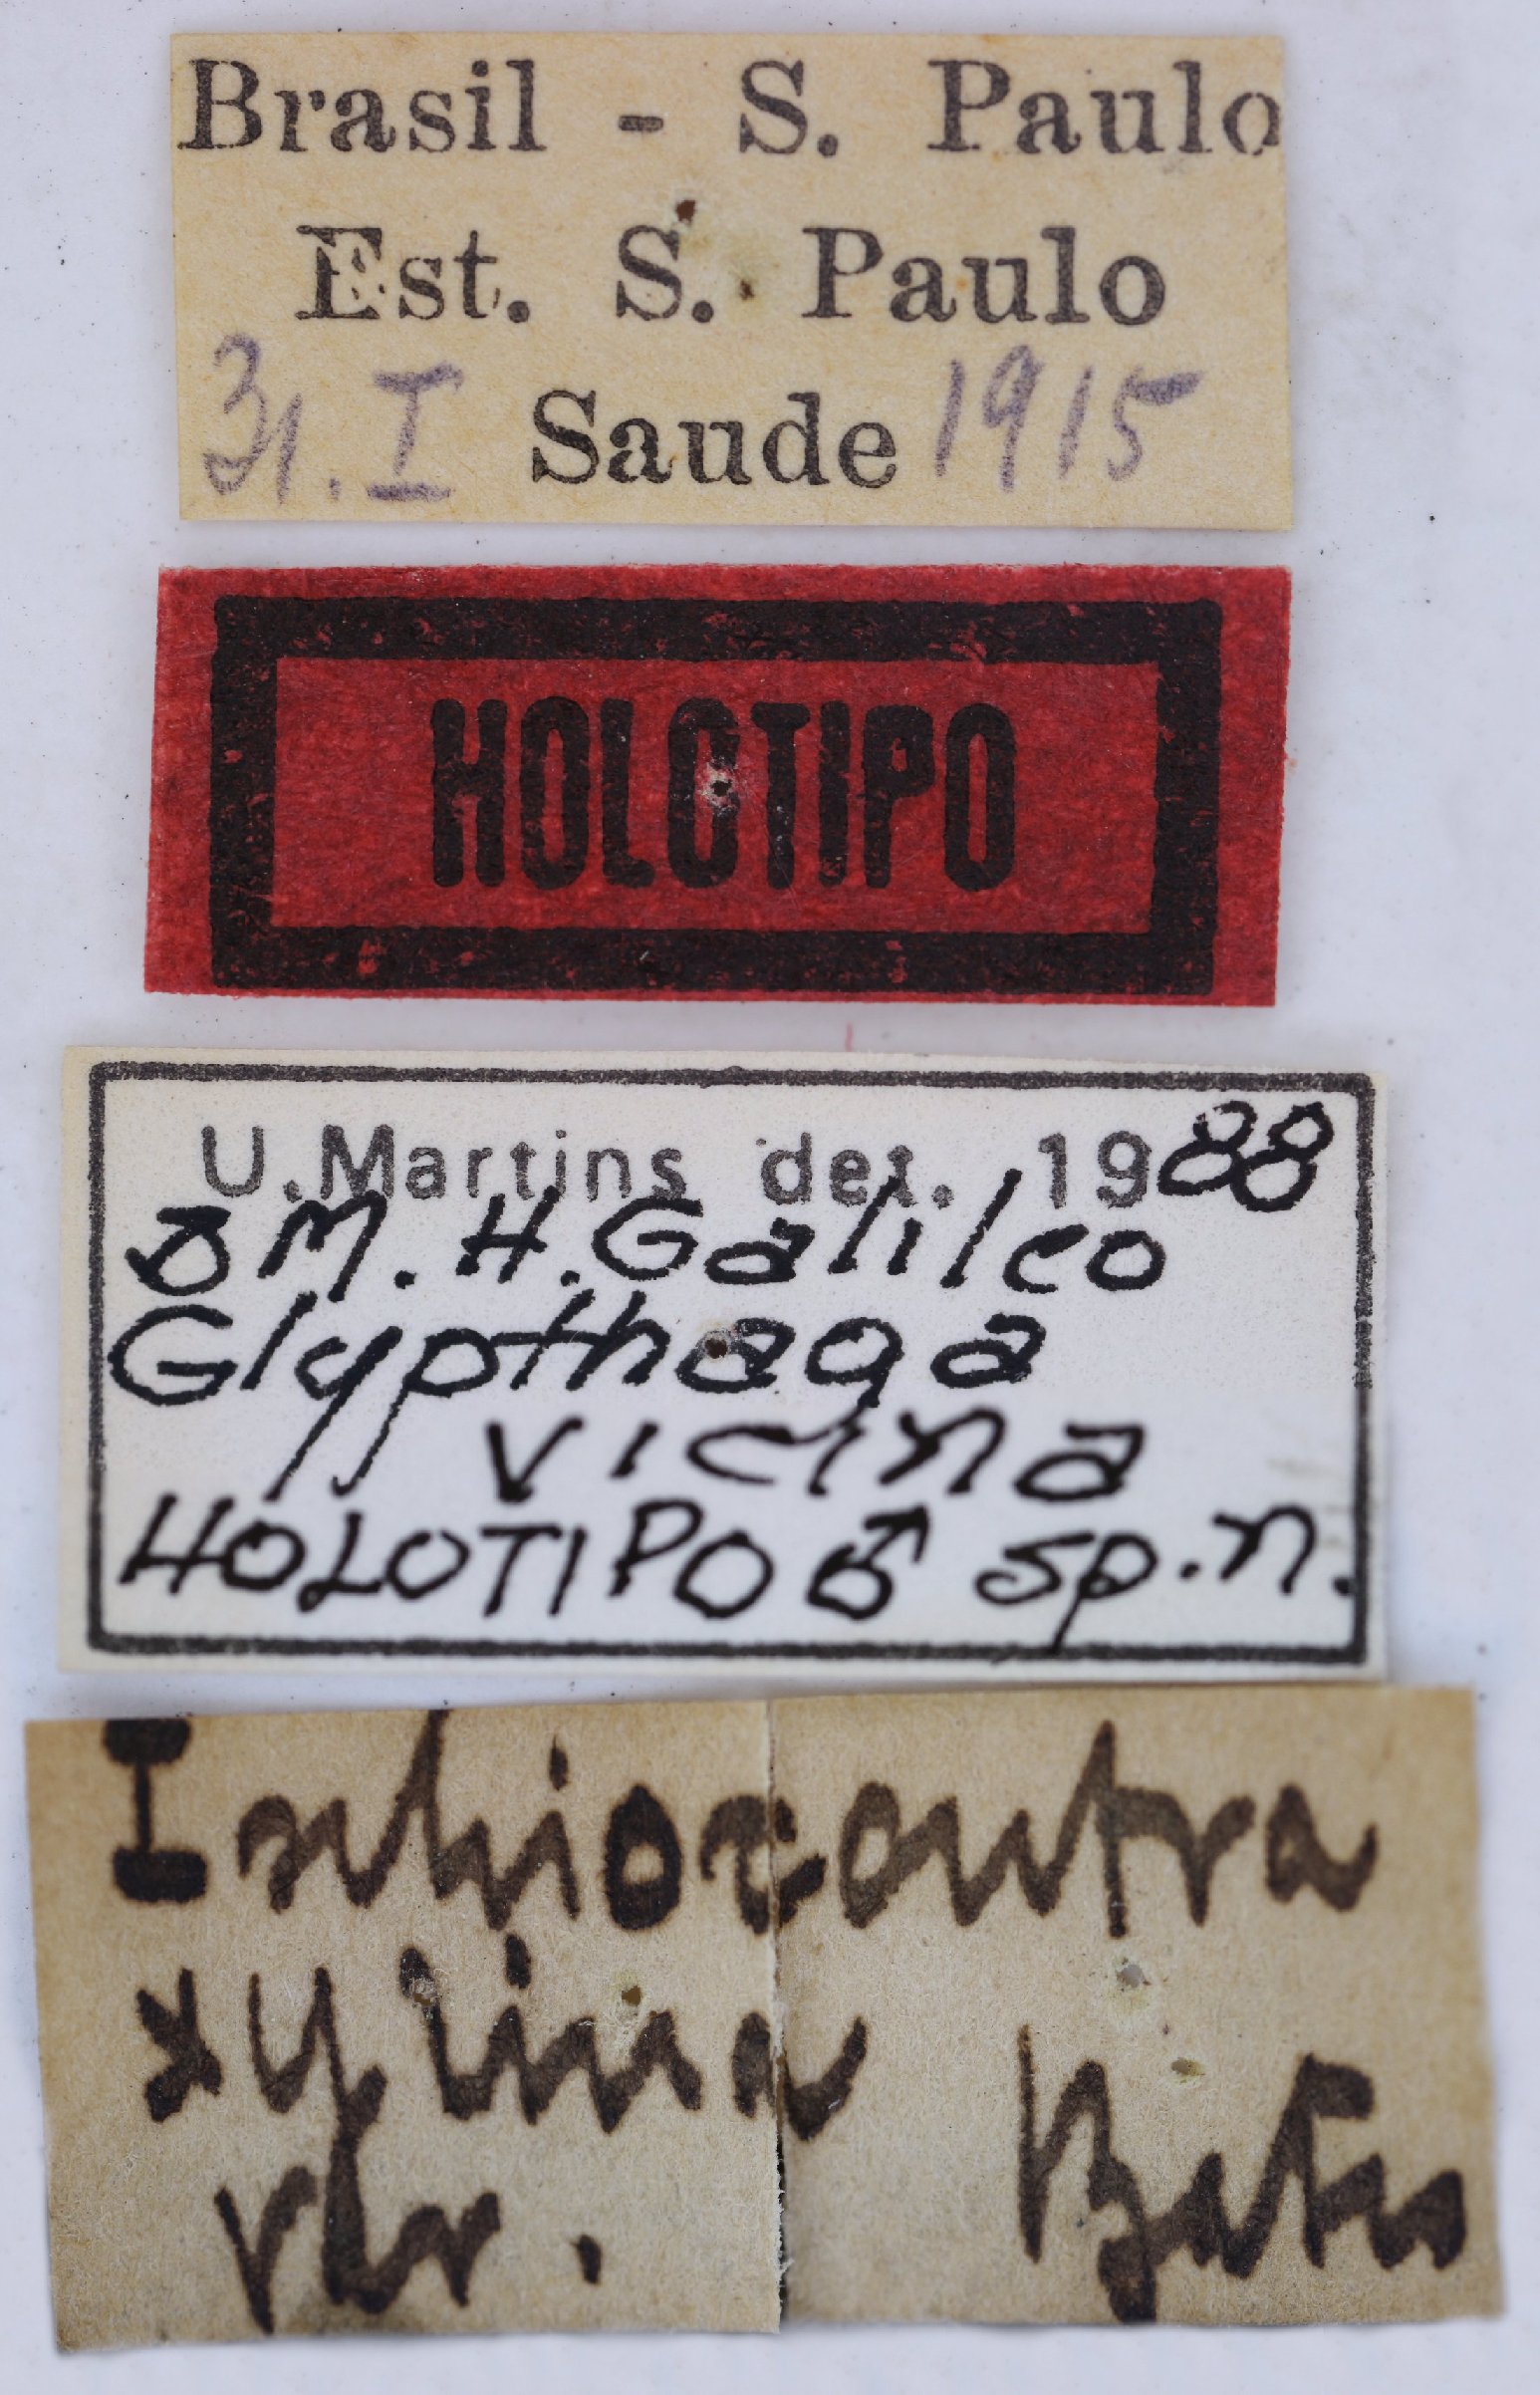 Brasil - S. Paulo
Est. S. Paulo
31. I Saude 1915
HOLOTIPO
U.Martins det. 1988
& M. H. Galileo
Glypthaga
vicina
HOLOTIPO ♂ sp.n.
Ischiocentra
xylina
Bates